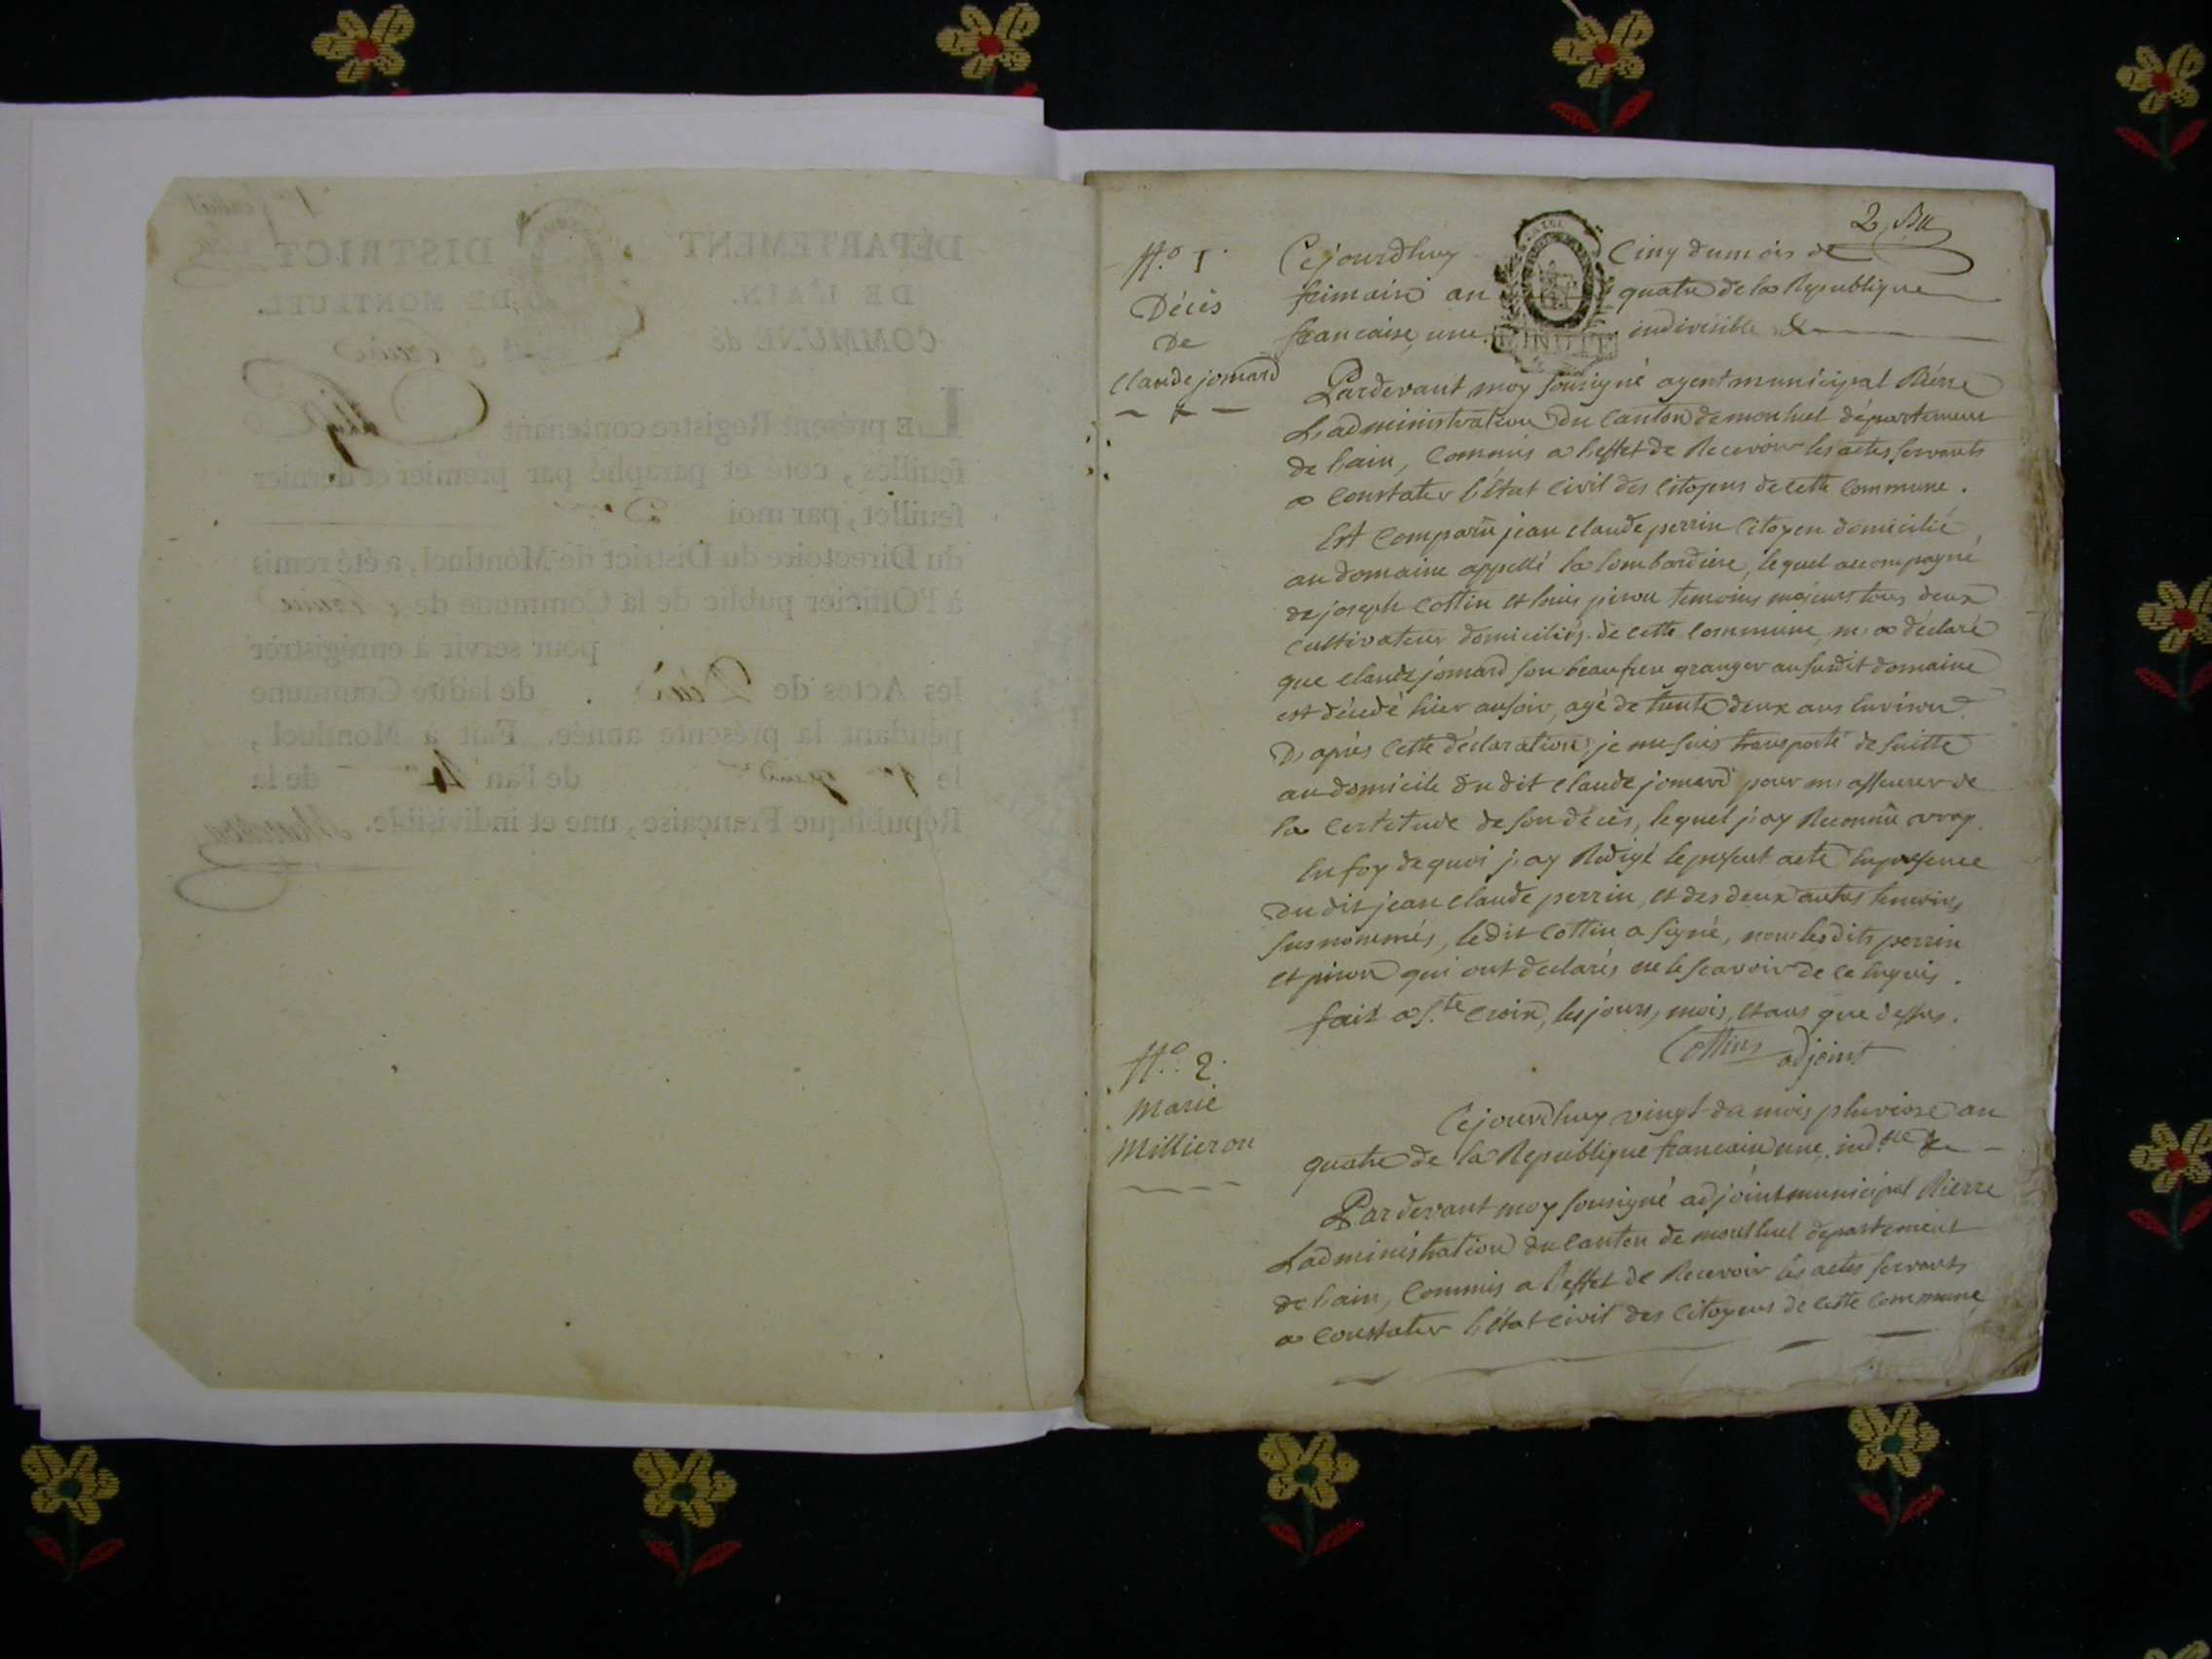 DÉPARTEMENT DISTRICT
DE L'AIN. DE MONTLUEL.
COMMUNE de
LE présent Registre contenant
feuilles, coté et paraphé par premier et dernier
feuillet, par moi
du Directoire du District de Montluel, a été remis
à l'Officier public de la Commune de
pour servir à enrégistrer
les Actes de Décès de ladite Commune
pendant la présente année. Fait à Montluel,
le de l'an 4 de la
République Française, une et indivisible.
2
N.o 1.
Décès
De
Claude jomard
Cejourdhuy Cinq du mois de
frimaire an quatre de la Republique
francaise, une indivisible &
MINUTE
Pardevant moy sousigné agent municipal Pierre
L'administration du Canton de montluel département
de l'ain, Commis a l'effet de Recevoir les actes servants
a Constater l'état Civil des Citoyens de cette Commune.
Est Comparû jean claude perrin Citoyen domicilié
au domaine appellé la lombardiere, lequel accompagné
de joseph Cottin et louis piron temoins majeurs tous deux
Cultivateur domiciliés de cette Commune, m'a déclaré
que claude jomard son beaufrere granger au susdit domaine
est décedé hier au soir, agé de trente deux ans Environ.
D'après Cette déclaration, je me suis transporté de suitte
au domicile du dit claude jomard pour m'asseurer de
la Certitude de son décès, lequel j'ay Reconnû vray.
En foy de quoi j'ay Redigé le present acte En presence
du dit jean claude perrin, et des deux autres temoins
susnommés, le dit Cottin a signé, non les dits perrin
et piron qui ont declarés ne le scavoir de ce Enquis.
fait a S.te Croix, les jours, mois, et ans que dessus.
Cottin adjoint
N.o 2.
Marie
Millieron
Cejourdhuy vingt du mois pluviose an
quatre de la Republique francaise une, ind.ble &
Pardevant moy sousigné adjoint municipal Pierre
L'administration du Canton de montluel departement
de l'ain, Commis a l'effet de Recevoir les actes servants
a Constater l'état civil des Citoyens de cette Commune